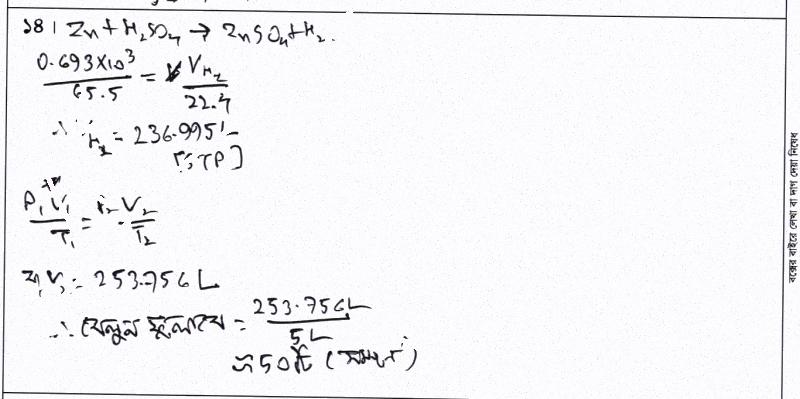 ১৪। Zn + H₂SO₄ → ZnSO₄ + H₂.
0.693×10³ / 65.5 = V H₂ / 22.4
∴ H₂ = 236.995 L
[STP]
P₁V₁ / T₁ = P₂V₂ / T₂
বা, V₂ = 253.756 L
∴ বেলুন ফুলাবে = 253.756L / 5L
≈ 50 টি (সম্পূর্ণ)
বক্সের বাইরে লেখা বা দাগ দেয়া নিষেধ